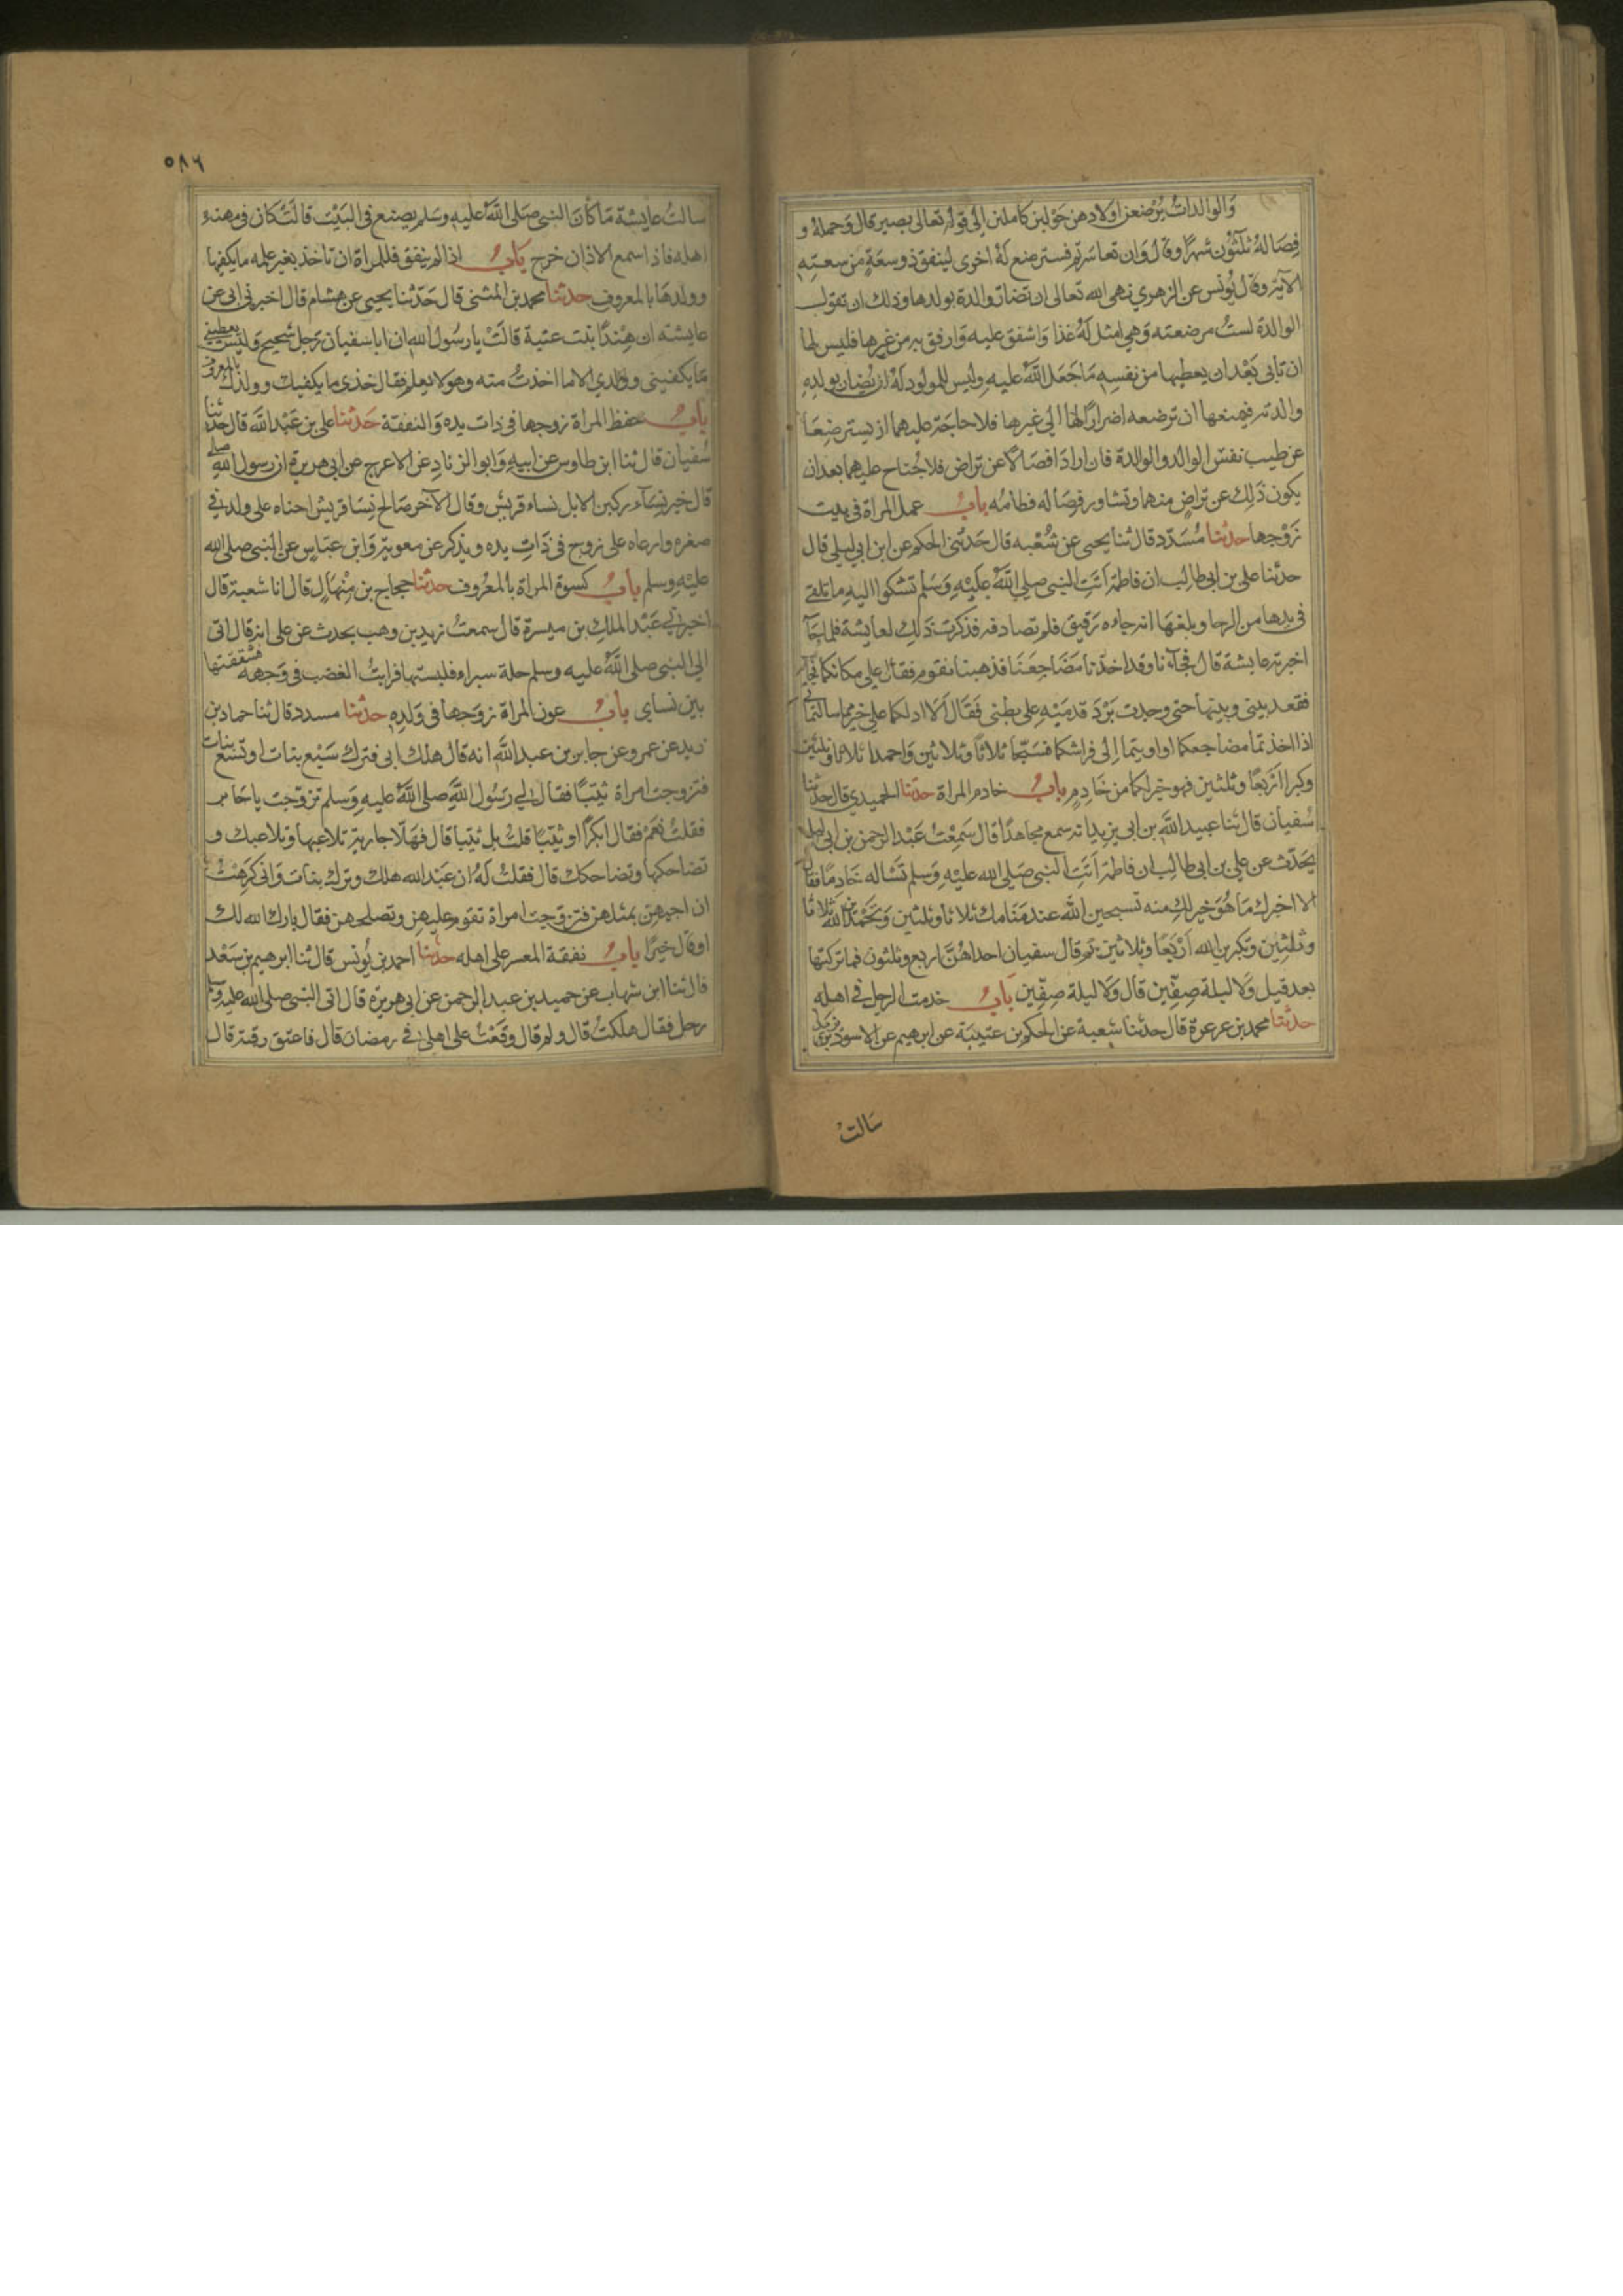 والوالدات يرضعن اولادهن حولين كاملين الى قوله تعالى بصير قال وحمله و
فصاله ثلثون شهرا وقال وان تعاسرتم فسترضع له اخرى لينفق ذو سعة من سعته
الآية وقال يونس عن الزهري نهى الله تعالى ان تضار والدة بولدها وذلك ان تقول
الوالدة لست مرضعته وهي امثل له غذا واشفق عليه وارفق به من غيرها فليس لها
ان تابى بعد ان يعطيها من نفسه ما جعل الله عليه وليس للمولود له ان يضار بولده
والدته فيمنعها ان ترضعه اضرارا لها الى غيرها فلا حاجة عليهما ان يسترضعا
عن طيب نفس الوالد والوالدة فان ارادا فصالا عن تراض فلا جناح عليهما بعد ان
يكون ذلك عن تراض منهما وتشاور فصاله فطامه باب عمل المراة في بيت
زوجها حدثنا مسدد قال ثنا يحيى عن شعبه قال حدثني الحكم عن ابن ابي ليلى قال
حدثنا علي بن ابي طالب ان فاطمة اتت النبي صلى الله عليه وسلم تشكوا اليه ما تلقى
في يدها من الرحا وبلغها انه جاءه رقيق فلم تصادفه فذكرت ذلك لعايشة فلما جآ
اخبرته عايشة قال فجآءنا وقد اخذنا مضاجعنا فذهبنا نقوم فقال على مكانكما فجآء
فقعد بيني وبينها حتى وجدت برد قدميه على بطني فقال الا ادلكما على خير مما سالتما
اذا اخذتما مضاجعكما او اويتما الى فراشكما فسبحا ثلاثا وثلاثين واحمدا ثلاثا وثلثين
وكبرا اربعا وثلثين فهو خير لكما من خادم باب خادم المراة حدثنا الحميدي قال حدثنا
سفيان قال ثنا عبيد الله بن ابي يزيد انه سمع مجاهدا قال سمعت عبد الرحمن بن ابي ليلى
يحدث عن علي بن ابي طالب ان فاطمة اتت النبي صلى الله عليه وسلم تساله خادما فقال
الا اخبرك ما هو خير لك منه تسبحين الله عند منامك ثلاثا وثلثين وتحمدين الله ثلاثا
وثلثين وتكبرين الله اربعا وثلاثين ثم قال سفيان احداهن اربع وثلثون فما تركتها
بعد قيل ولا ليلة صفين قال ولا ليلة صفين باب خدمت الرجل في اهله
حدثنا محمد بن عرعرة قال حدثنا شعبة عن الحكم بن عتيبة عن ابرهيم عن الاسود بن يزيد
سالت
٥٨٦
سالت عايشة ما كان النبي صلى الله عليه وسلم يصنع في البيت قالت كان في مهنة
اهله فاذا سمع الاذان خرج باب اذا لم ينفق فللمراة ان تاخذ بغير علمه ما يكفيها
وولدها بالمعروف حدثنا محمد بن المثنى قال حدثنا يحيى عن هشام قال اخبرني ابي عن
عايشه ان هندا بنت عتبة قالت يا رسول الله ان ابا سفيان رجل شحيح وليس يعطيني
ما يكفيني وولدي الا ما اخذت منه وهو لا يعلم فقال خذي ما يكفيك وولدك بالمعروف
باب حفظ المراة زوجها في ذات يده والنفقة حدثنا علي بن عبد الله قال حدثنا
سفيان قال ثنا ابن طاوس عن ابيه وابو الزناد عن الاعرج عن ابي هريرة ان رسول الله صلى
قال خير نساء ركبن الابل نساء قريش وقال الآخر صالح نسا قريش احناه على ولد في
صغره وارعاه على زوج في ذات يده ويذكر عن معوية وابن عباس عن النبي صلى الله
عليه وسلم باب كسوة المراة بالمعروف حدثنا حجاج بن منهال قال انا شعبة قال
اخبرني عبد الملك بن ميسرة قال سمعت زيد بن وهب يحدث عن علي انه قال اتى
الي النبي صلى الله عليه وسلم حلة سيراء فلبستها فرايت الغضب في وجهه فشققتها
بين نساى باب عون المراة زوجها في ولده حدثنا مسدد قال ثنا حماد بن
زيد عن عمرو عن جابر بن عبد الله انه قال هلك ابي فترك سبع بنات او تسع بنات
فتزوجت امراة ثيبا فقال لي رسول الله صلى الله عليه وسلم تزوجت يا جابر
فقلت نعم فقال ابكرا او ثيبا قلت بل ثيبا قال فهلا جارية تلاعبها وتلاعبك و
تضاحكها وتضاحكك قال فقلت له ان عبد الله هلك وترك بنات واني كرهت
ان اجيهن بمثلهن فتزوجت امراة تقوم عليهن وتصلحهن فقال بارك الله لك
او قال خيرا باب نفقة المعسر على اهله حدثنا احمد بن يونس قال ثنا ابرهيم بن سعد
قال ثنا ابن شهاب عن حميد بن عبد الرحمن عن ابي هريرة قال اتى النبي صلى الله عليه وسلم
رجل فقال هلكت قال ولم قال وقعت على اهلي في رمضان قال فاعتق رقبة قال